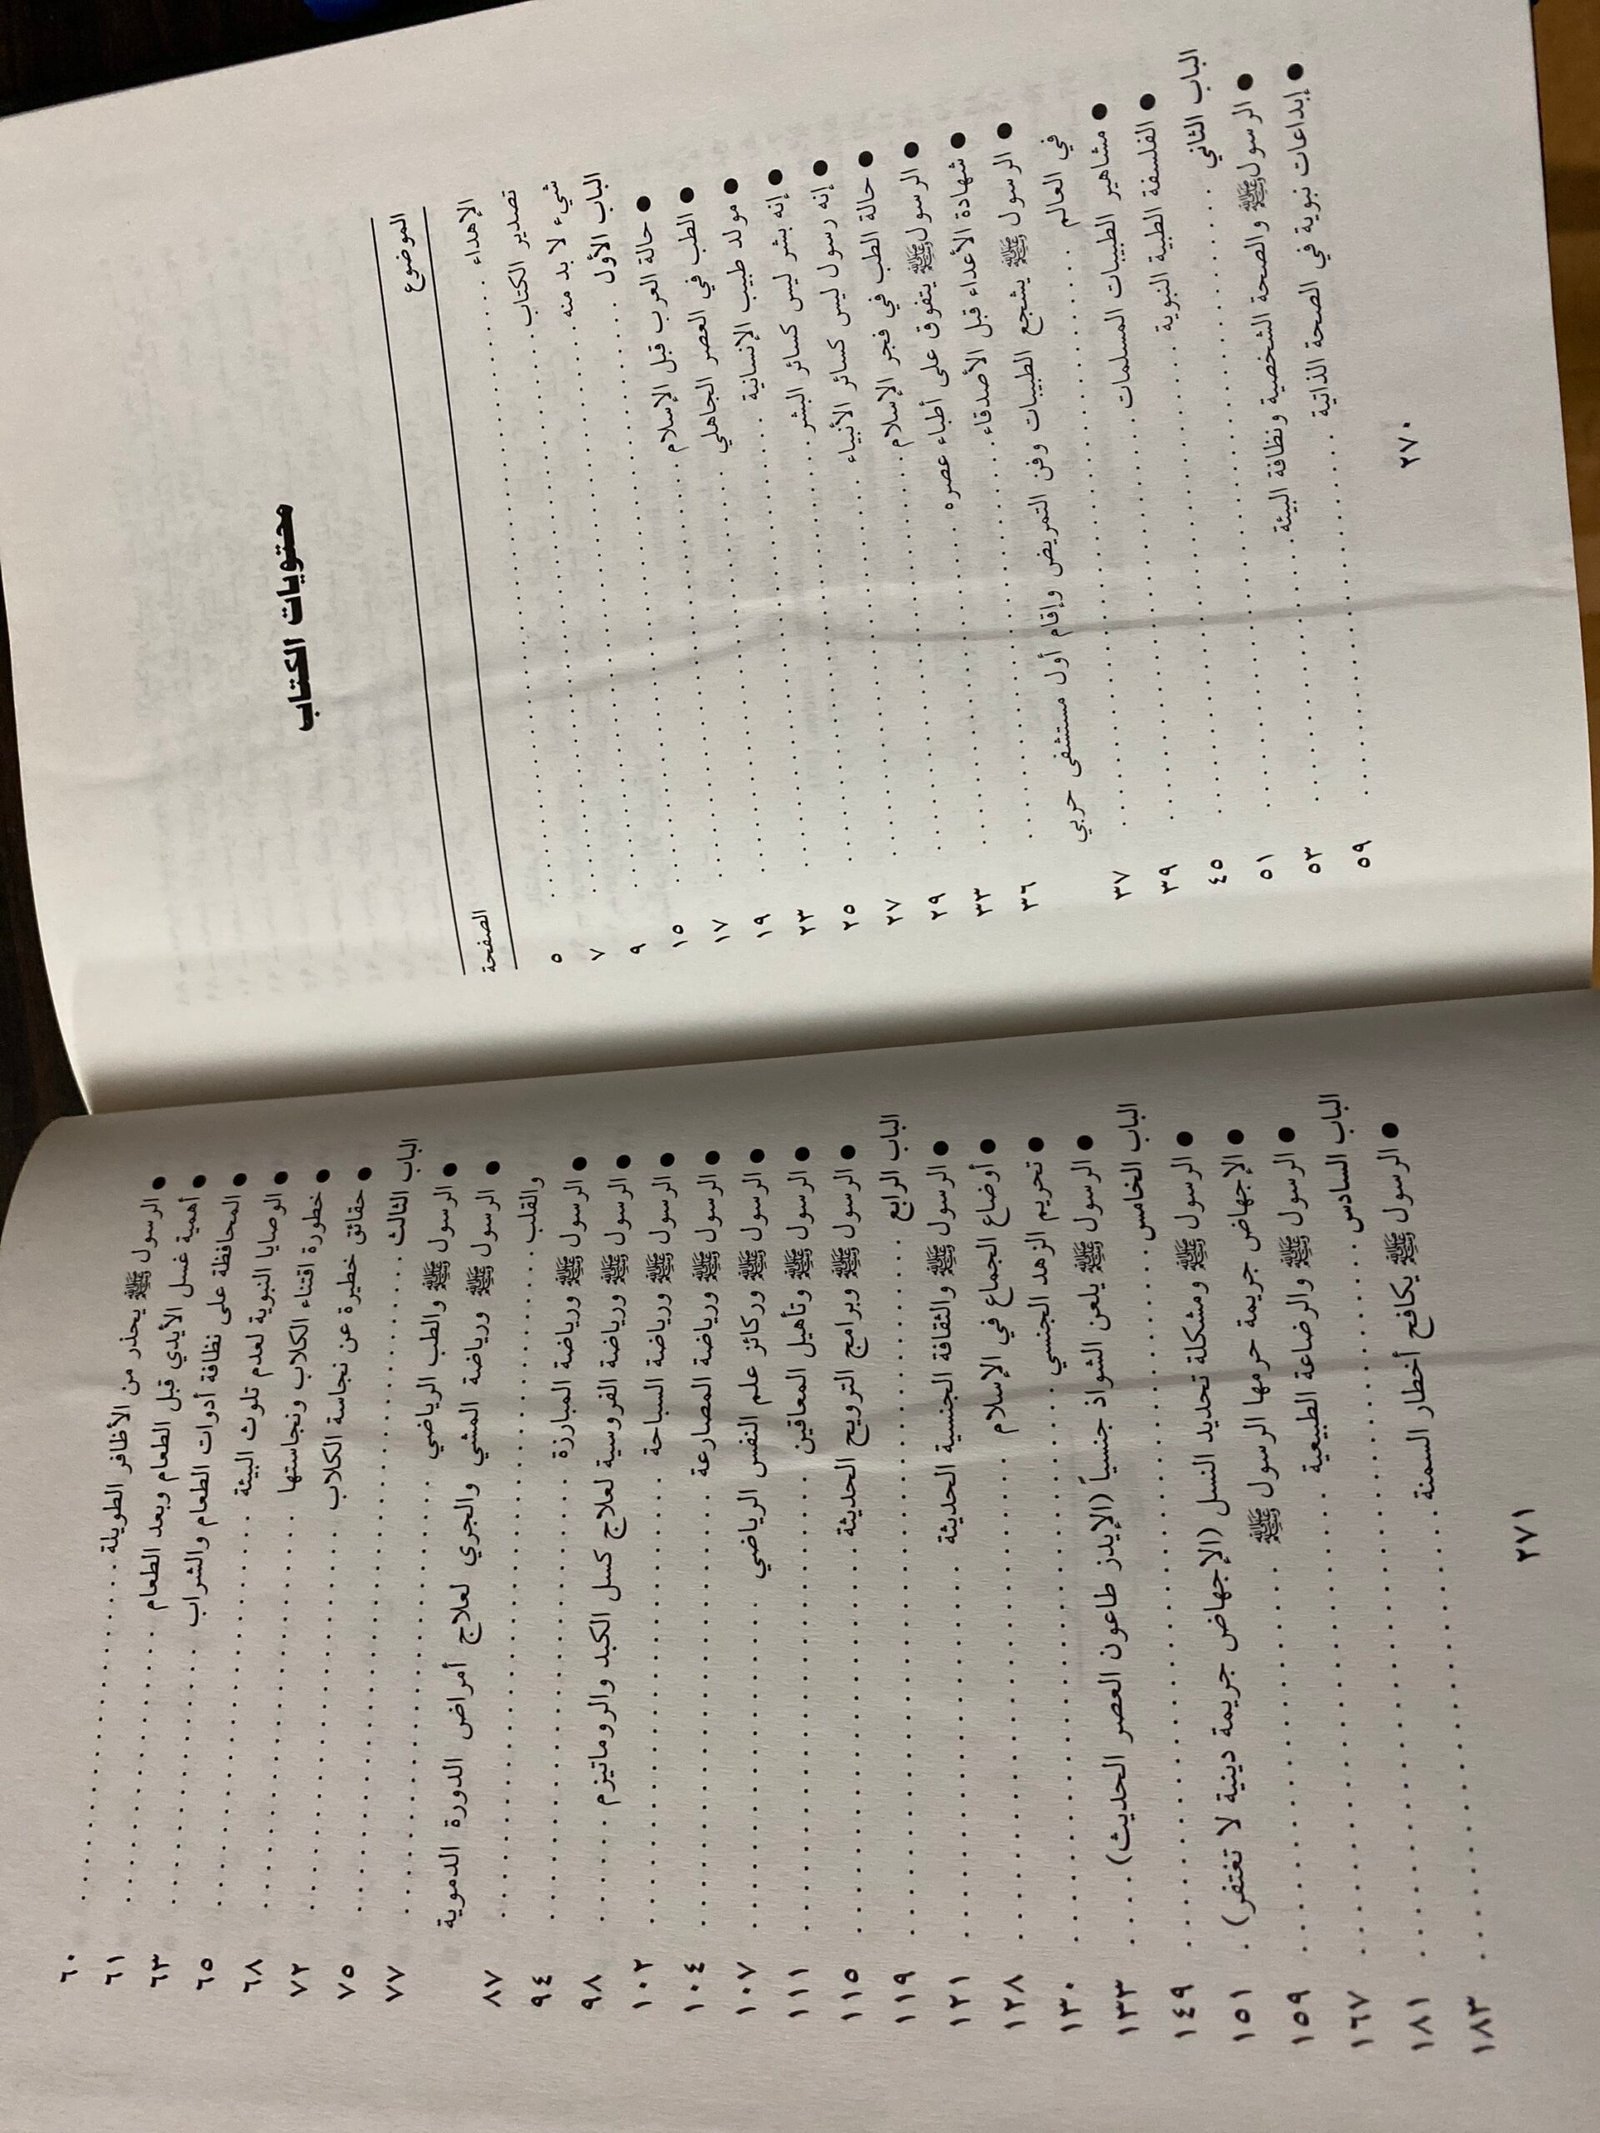 محتويات الكتاب
الموضوع الصفحة
الإهداء ........ ٥
تصدير الكتاب ........ ٧
شيء لا بد منه ........ ٩
الباب الأول ........ ١٥
● حالة العرب قبل الإسلام ........ ١٧
● الطب في العصر الجاهلي ........ ١٩
● مولد طبيب الإنسانية ........ ٢٣
● إنه بشر ليس كسائر البشر ........ ٢٥
● إنه رسول ليس كسائر الأنبياء ........ ٢٧
● حالة الطب في فجر الإسلام ........ ٢٩
● الرسول ﷺ يتفوق على أطباء عصره ........ ٣٣
● شهادة الأعداء قبل الأصدقاء ........ ٣٦
● الرسول ﷺ يشجع الطبيبات وفن التمريض وإقام أول مستشفى حربي
في العالم ........ ٣٧
● مشاهير الطبيبات المسلمات ........ ٣٩
● الفلسفة الطبية النبوية ........ ٤٥
الباب الثاني ........ ٥١
● الرسول ﷺ والصحة الشخصية ونظافة البيئة ........ ٥٣
● إبداعات نبوية في الصحة الذاتية ........ ٥٩
٢٧٠
● الرسول ﷺ يحذر من الأظافر الطويلة ........ ٦٠
● أهمية غسل الأيدي قبل الطعام وبعد الطعام ........ ٦١
● المحافظة على نظافة أدوات الطعام والشراب ........ ٦٣
● الوصايا النبوية لعدم تلوث البيئة ........ ٦٥
● خطورة اقتناء الكلاب ونجاستها ........ ٦٨
● حقائق خطيرة عن نجاسة الكلاب ........ ٧٢
الباب الثالث ........ ٧٥
● الرسول ﷺ والطب الرياضي ........ ٧٧
● الرسول ﷺ ورياضة المشي والجري لعلاج أمراض الدورة الدموية
والقلب ........ ٨٧
● الرسول ﷺ ورياضة المبارزة ........ ٩٤
● الرسول ﷺ ورياضة الفروسية لعلاج كسل الكبد والروماتيزم ........ ٩٨
● الرسول ﷺ ورياضة السباحة ........ ١٠٢
● الرسول ﷺ ورياضة المصارعة ........ ١٠٤
● الرسول ﷺ وركائز علم النفس الرياضي ........ ١٠٧
● الرسول ﷺ وتأهيل المعاقين ........ ١١١
● الرسول ﷺ وبرامج الترويح الحديثة ........ ١١٥
الباب الرابع ........ ١١٩
● الرسول ﷺ والثقافة الجنسية الحديثة ........ ١٢١
● أوضاع الجماع في الإسلام ........ ١٢٨
● تحريم الزهد الجنسي ........ ١٣٠
● الرسول ﷺ يلعن الشواذ جنسياً (الإيدز طاعون العصر الحديث) .... ١٣٣
الباب الخامس ........ ١٤٩
● الرسول ﷺ ومشكلة تحديد النسل (الإجهاض جريمة دينية لا تغتفر) . ١٥١
● الإجهاض جريمة حرمها الرسول ﷺ ........ ١٥٩
● الرسول ﷺ والرضاعة الطبيعية ........ ١٦٧
الباب السادس ........ ١٨١
● الرسول ﷺ يكافح أخطار السمنة ........ ١٨٣
٢٧١